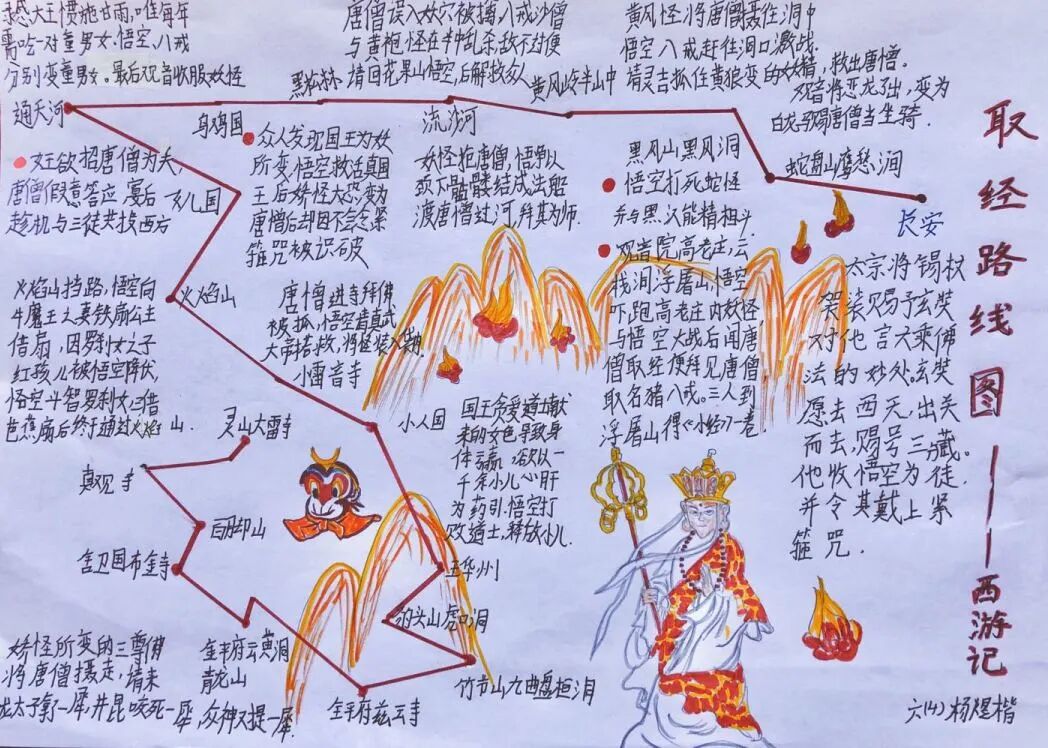 取经路线图——西游记
大王惯施甘雨,唯每年
需吃一对童男女.悟空,八戒
分别变童男女.最后观音收服妖怪
通天河
乌鸡国
黑松林
唐僧误入妖穴被擒,八戒沙僧
与黄袍怪在半中乱杀,敌不过便
请回花果山悟空,后解救众人
流沙河
黄风岭半山中
黄风怪将唐僧摄住洞中
悟空八戒赶住洞口激战.
请灵吉抓住黄狼变的妖精,救出唐僧.
观音将恶龙 出,变为
白龙马赐唐僧当坐骑.
蛇盘山鹰愁涧
长安
女王欲招唐僧为夫,
唐僧假意答应 宴后
趁机与三徒共投西方
女儿国
众人发现国王为妖
所变,悟空救活真国
王后妖怪大恐,变为
唐僧后却因不会念紧
箍咒被识破
妖怪抱唐僧,悟净以
颈下骷髅结成法船
渡唐僧过河,拜其为师.
黑风山黑风洞
悟空打死蛇怪
并与黑 熊精相斗
观音院高老庄,云
栈洞浮屠山,悟空
吓跑高老庄内妖怪
与悟空大战后闻唐
僧取经便拜见唐僧
取名猪八戒。三人到
浮屠山得《心经》一卷
太宗将锡杖
袈裟赐予玄奘
对他言大乘佛
法的妙处.玄奘
愿去西天,出关
而去,赐号三藏。
他收悟空为徒,
并令其戴上紧
箍咒.
火焰山挡路,悟空向
牛魔王之妻铁扇公主
借扇,因罗刹女之子
红孩儿被悟空降伏,
悟空斗智罗刹女,三借
芭蕉扇后终于通过火焰山.
火焰山
唐僧进寺拜佛
被抓,悟空肯真武
大帝搭救,将怪装入
小雷音寺
小人国
国王贪爱道士献
来的女色导致身
体云羸,欲以一
千余小儿心肝
为药引,悟空打
败道士,释放小儿.
灵山大雷寺
真观寺
舍卫国布金寺
玉华州
豹头山虎口洞
竹节山九曲盘桓洞
金平府慈云寺
金平府云黄洞
青龙山
妖怪所变的三尊佛
将唐僧摄走,请来
龙太子拿一犀,井昆咬死一犀,众神又提一犀.
六(4)杨煜楷